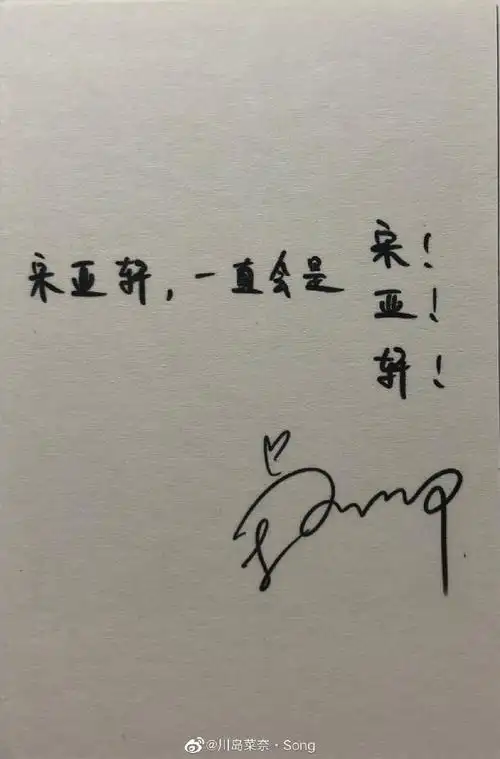 宋亚轩，一直会是
宋！
亚！
轩！
@川岛菜奈·Song